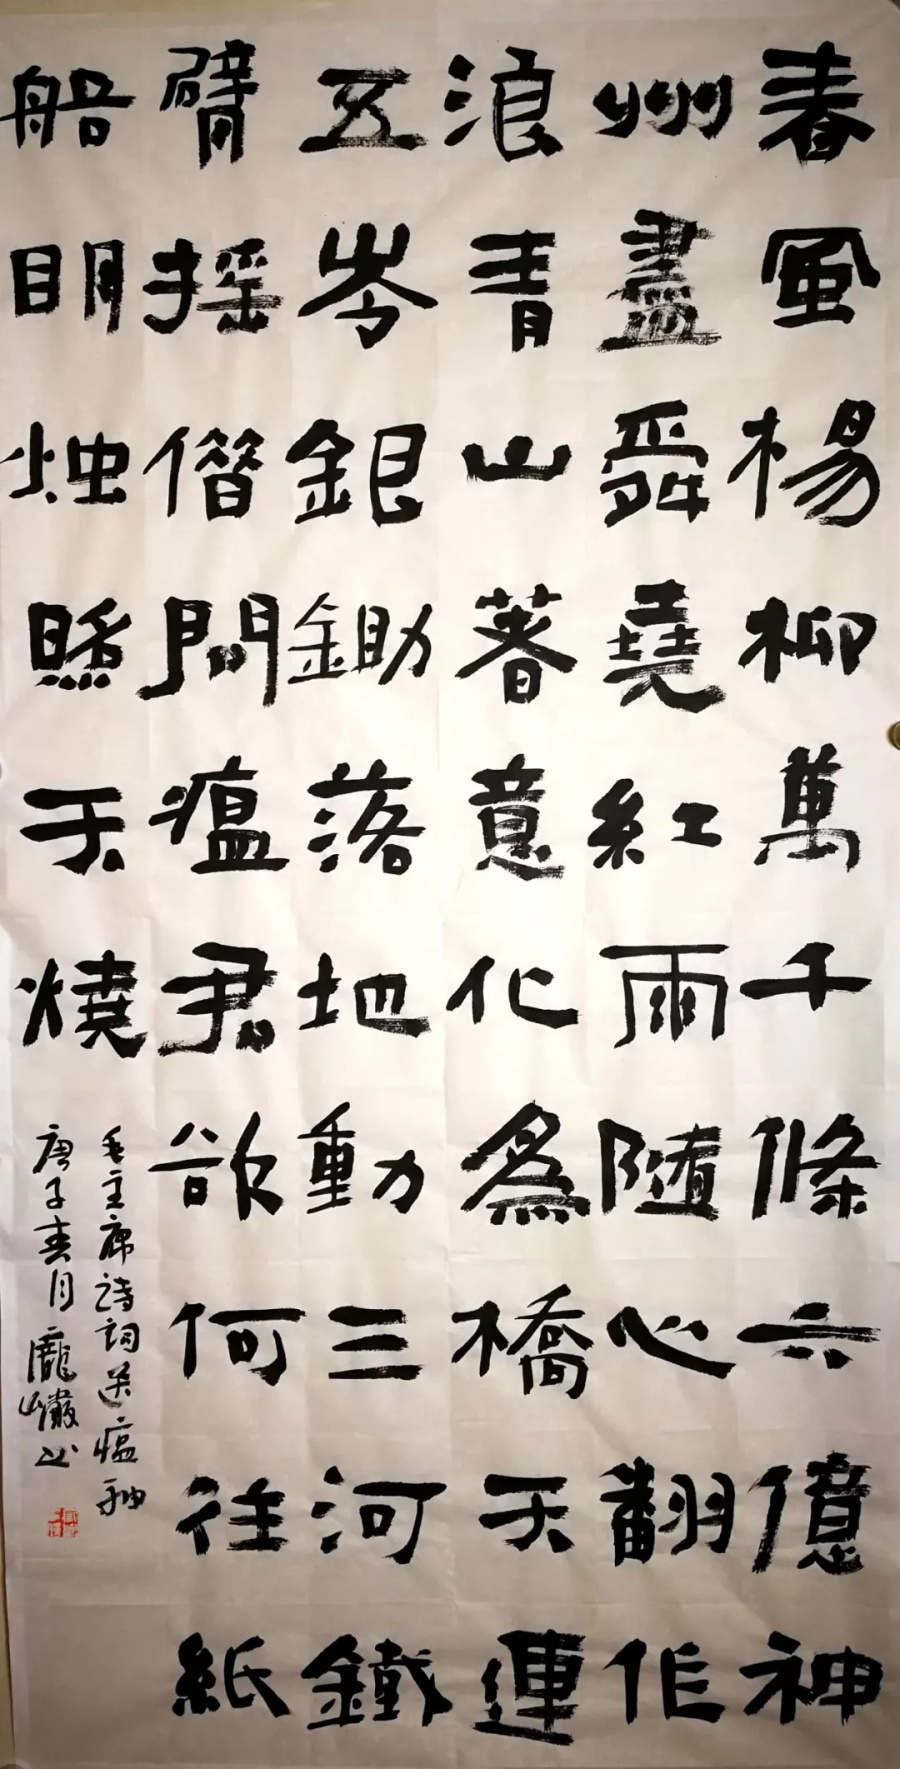 春風楊柳萬千條六億神
州盡舜堯紅雨隨心翻作
浪青山著意化為橋天連
五岑銀鋤落地動三河鐵
臂摇借問瘟君欲何往紙
船明烛照天燒
毛主席詩詞送瘟神
庚子春月龐